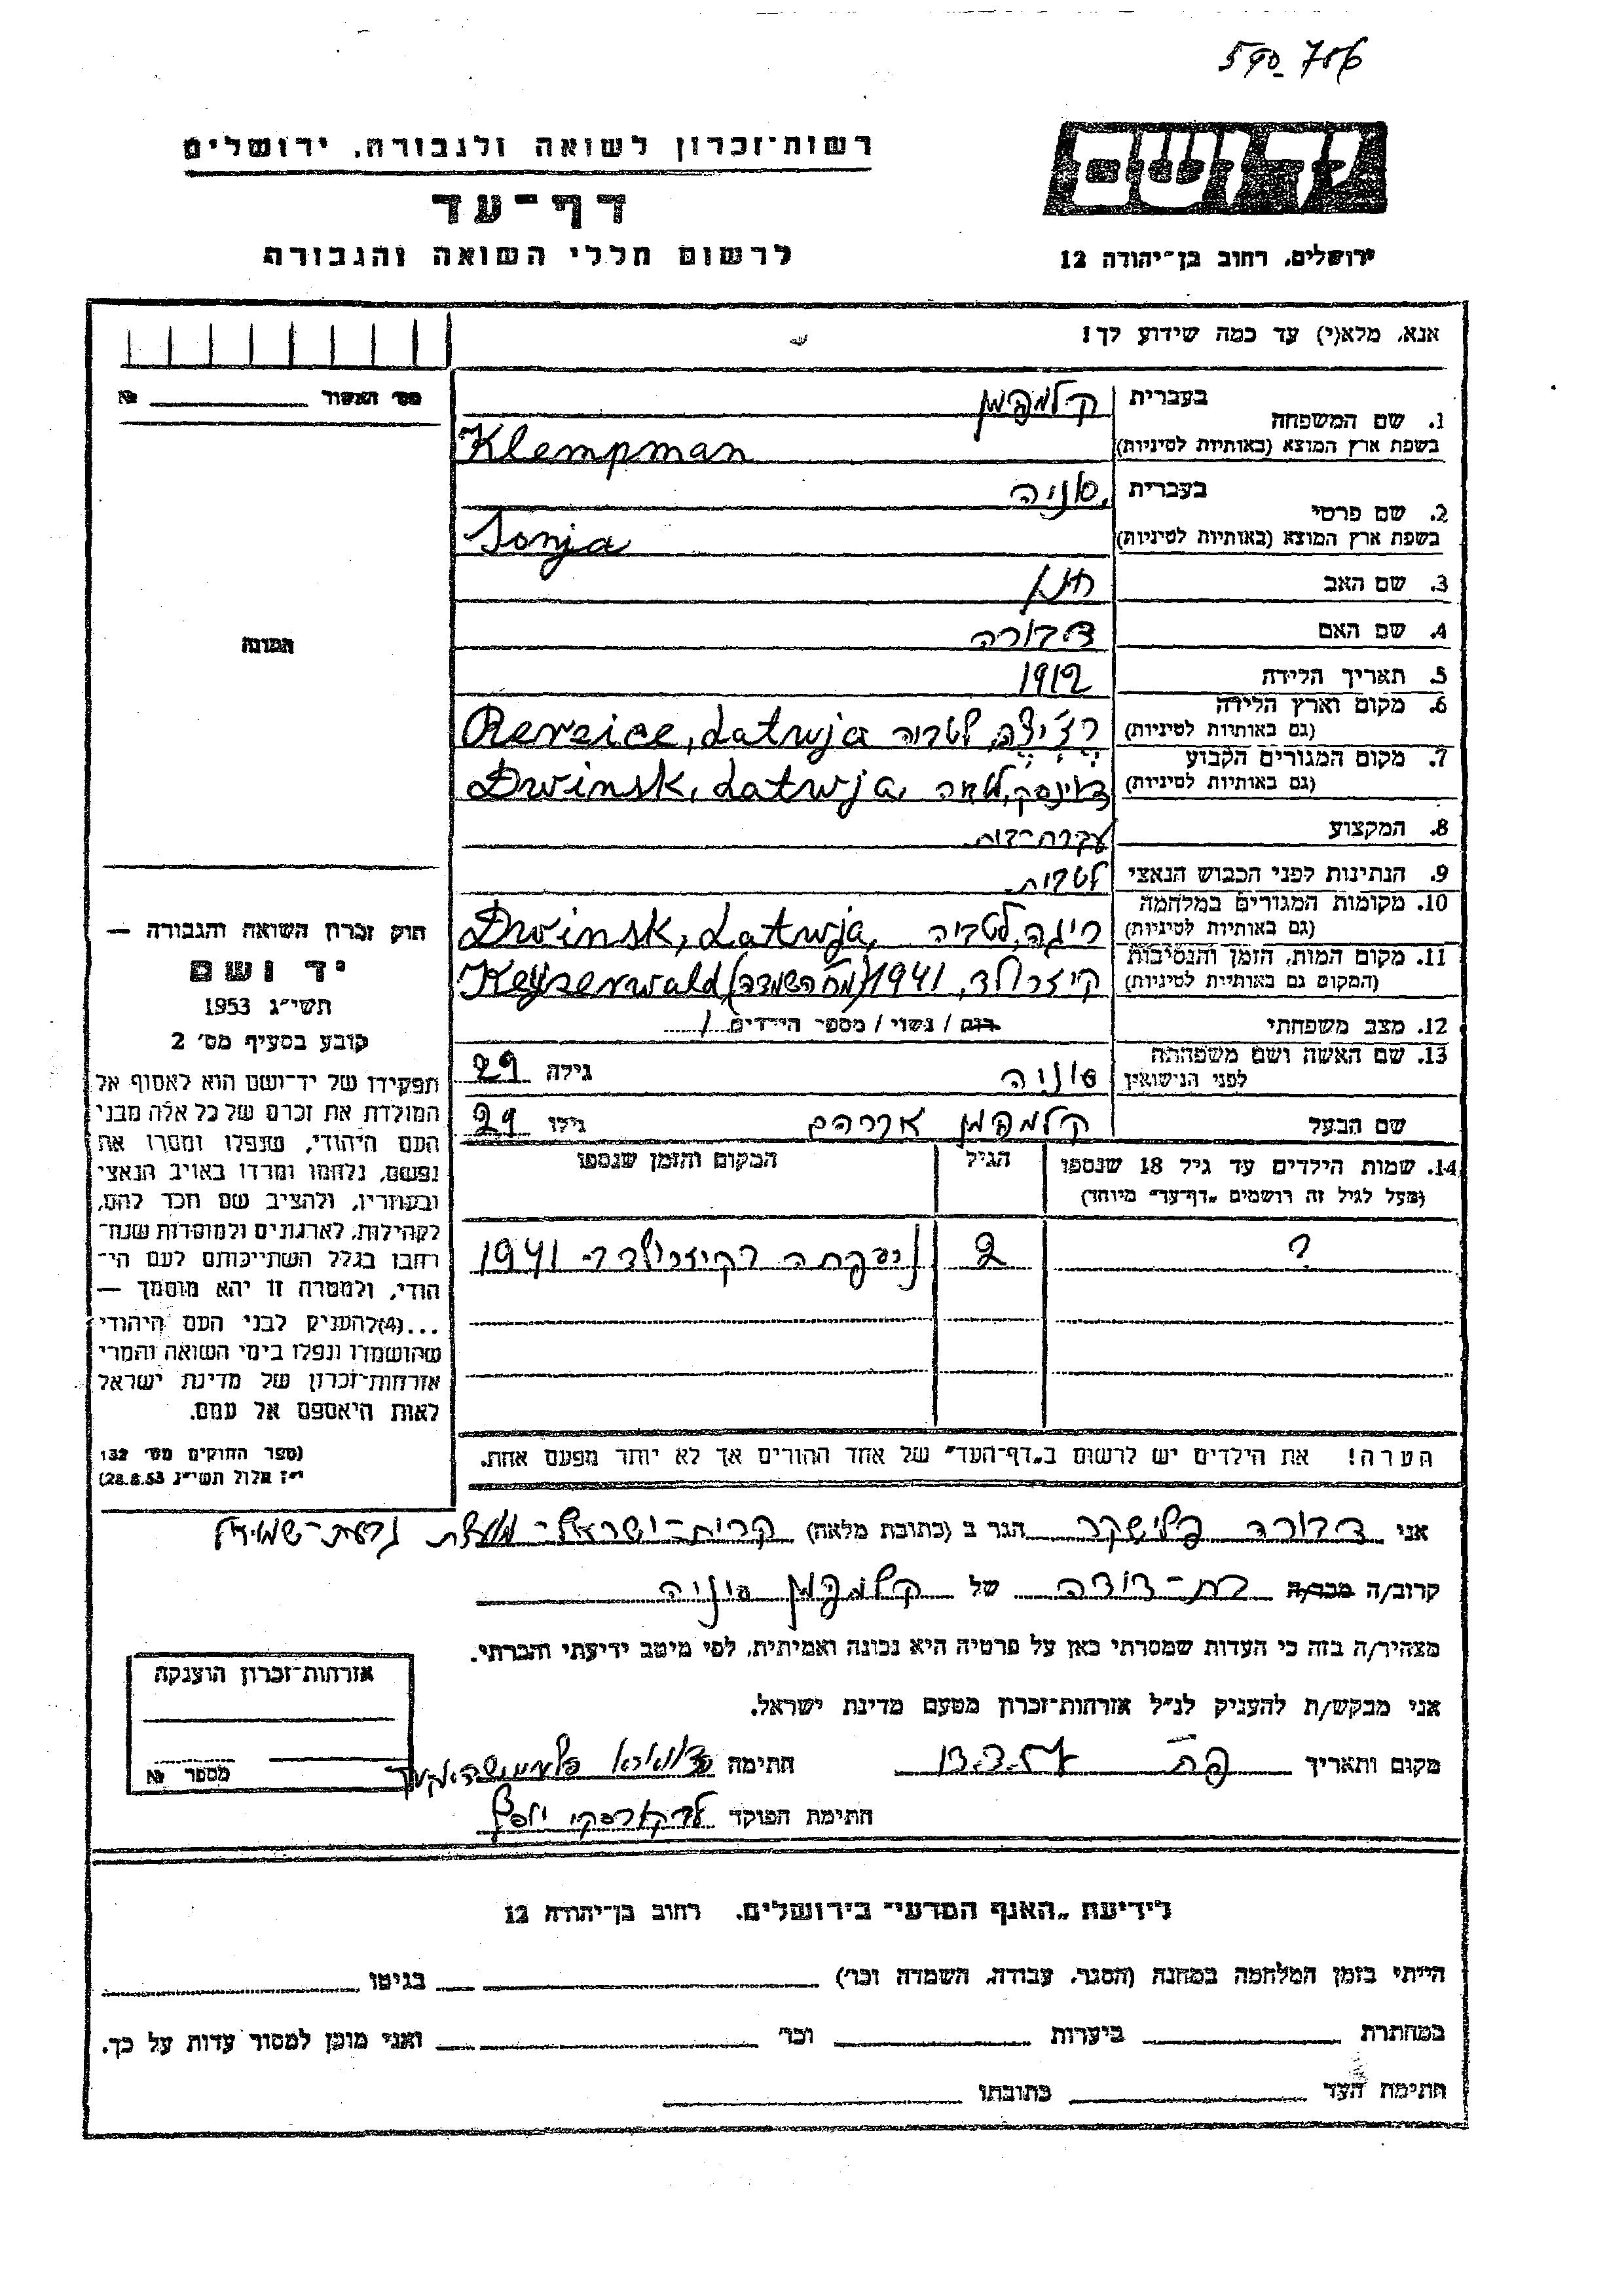 590_706
רשות־זכרון לשואה ולגבורה, ירושלים
דף־עד
לרשום חללי השואה והגבורה
ידושם
ירושלים, רחוב בן־יהודה 12
אנא, מלא(י) עד כמה שידוע לך!
מס׳ האשור №
1. שם המשפחה
בעברית קלמפמן
בשפת ארץ המוצא (באותיות לטיניות) Klempman
2. שם פרטי
בעברית סוניה
בשפת ארץ המוצא (באותיות לטיניות) Sonja
3. שם האב
4. שם האם דבורה
5. תאריך הלידה 1912
6. מקום וארץ הלידה
(גם באותיות לטיניות) לטביה Rereice, Latwja
7. מקום המגורים הקבוע
(גם באותיות לטיניות) דווינסק, Dwinsk, Latwja
8. המקצוע עקרת־בית
9. הנתינות לפני הכבוש הנאצי לטבית
10. מקומות המגורים במלחמה
(גם באותיות לטיניות) ריגה, לטביה Dwinsk, Latwja
11. מקום המות, הזמן והנסיבות
(המקום גם באותיות לטיניות) קיזרולד, 1941 (מח׳ השמדה) Keyzerwald
12. מצב משפחתי רווק / נשוי / מספר הילדים 1
13. שם האשה ושם משפחתה
לפני הנישואין סוניה גילה 29
שם הבעל קלמפמן אברהם גילו 29
14. שמות הילדים עד גיל 18 שנספו הגיל המקום והזמן שנספו
(מעל לגיל זה רושמים „דף־עד” מיוחד)
? 2 נספתה בקיזרולד ב־1941
הערה! את הילדים יש לרשום ב„דף־העד” של אחד ההורים אך לא יותר מפעם אחת.
תמונה
חוק זכרון השואה והגבורה —
יד ושם
תשי״ג 1953
קובע בסעיף מס׳ 2
תפקידו של יד־ושם הוא לאסוף אל
המולדת את זכרם של כל אלה מבני
העם היהודי, שנפלו ומסרו את
נפשם, נלחמו ומרדו באויב הנאצי
ובעוזריו, ולהציב שם וזכר להם,
לקהילות, לארגונים ולמוסדות שנח־
רבו בגלל השתייכותם לעם הי־
הודי, ולמטרה זו יהא מוסמך —
...(4)להעניק לבני העם היהודי
שהושמדו ונפלו בימי השואה והמרי
אזרחות־זכרון של מדינת ישראל
לאות היאספם אל עמם.
(ספר החוקים מס׳ 132
י״ז אלול תשי״ג 28.8.53)
אני דבורה פלישקר הגר ב (כתובת מלאה) קרית־ישראל־ גבעת־שמואל
קרוב/ה מכר/ה בת־דודה של קלמפמן סוניה
מצהיר/ה בזה כי העדות שמסרתי כאן על פרטיה היא נכונה ואמיתית, לפי מיטב ידיעתי והכרתי.
אני מבקש/ת להעניק לנ״ל אזרחות־זכרון מטעם מדינת ישראל.
מקום ותאריך פת חתימה
חתימת הפוקד יוסף
אזרחות־זכרון הוענקה
מספר №
לידיעת „האגף המדעי” בירושלים, רחוב בן־יהודה 12
הייתי בזמן המלחמה במחנה (הסגר, עבודה, השמדה וכו׳) בגיטו
במחתרת ביערות וכו׳ ואני מוכן למסור עדות על כך.
חתימת העד כתובתו